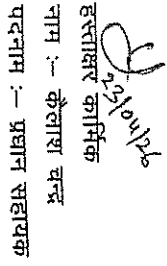 23/04/26
हस्ताक्षर कार्मिक
नाम :- कैलाश चन्द्र
पदनाम :- प्रधान सहायक